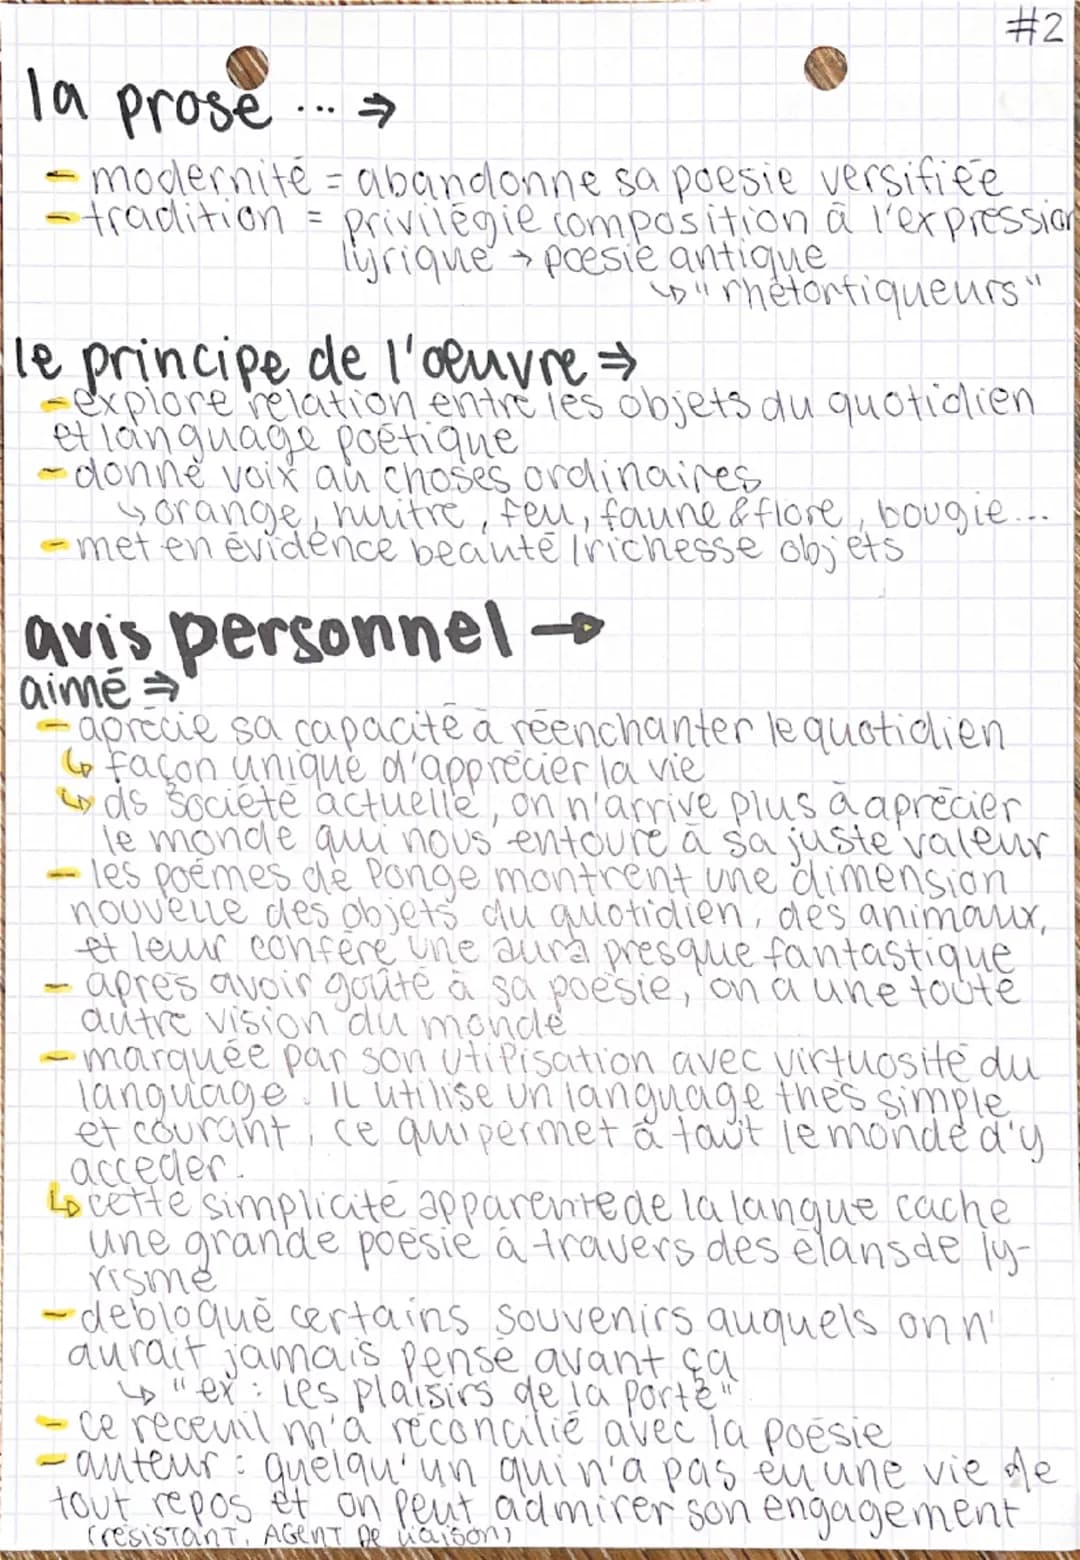 #2
la prose ... ⇒
- modernité = abandonne sa poesie versifiée
- tradition = privilégie composition à l'expression
lyrique → poesie antique
↳ "rhétortiqueurs"
le principe de l'œuvre ⇒
- explore relation entre les objets du quotidien
et language poétique
- donne voix au choses ordinaires
↳ orange, huitre, feu, faune & flore, bougie...
- met en évidence beauté/richesse objets
avis personnel →
aimé ⇒
- aprécie sa capacité à réenchanter le quotidien
↳ façon unique d'apprécier la vie
↳ ds société actuelle, on n'arrive plus à aprécier
le monde qui nous entoure à sa juste valeur
- les poémes de Ponge montrent une dimension
nouvelle des objets du quotidien, des animaux,
et leur confère une aura presque fantastique
- après avoir goûté à sa poésie, on a une toute
autre vision du monde
- marquée par son utilisation avec virtuosité du
language. Il utilise un language thès simple
et courant, ce qui permet à tout le monde d'y
acceder.
↳ cette simplicité apparente de la langue cache
une grande poésie à travers des élans de ly-
risme
- debloqué certains souvenirs auquels on n'
aurait jamais pensé avant ça
↳ "ex : les plaisirs de la porte"
- ce receuil m'a réconcilié avec la poésie
- auteur : quelqu'un qui n'a pas eu une vie de
tout repos et on peut admirer son engagement
(résistant, AGENT De liaison)